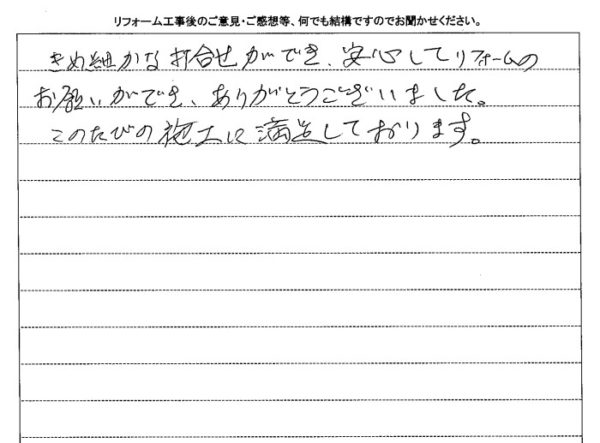 リフォーム工事後のご意見・ご感想等、何でも結構ですのでお聞かせください。
きめ細かな打合せができ、安心してリフォームの
お願いができ、ありがとうございました。
このたびの施工に満足しております。